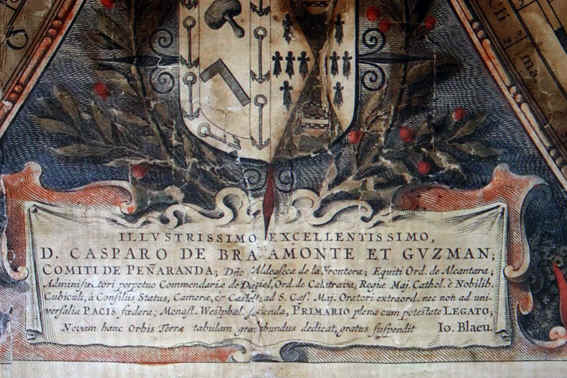 ILLVSTRISSIMO EXCELLENTISSIMO,
D. CASPARO DE BRACAMONTE ET GVZMAN;
COMITI DE PEÑARANDA; Dño Aldeaseca de la Frontera; Equiti Ord. de Alcantara;
Administratori perpetuo Commendariæ de Daimiel, Ord. de Calatrava, Regiæ Maj. Cathol. è Nobilib.
Cubiculi, à Consiliis Status, Cameræ, & Castellæ; ad S. Cæs. Maj. Oratori extraord. nec non ad uni-
versalia PACIS fœdera; Monast. Westphal. facienda, PRIMARIO plena cum potestate LEGATO,
Novam hanc Orbis Terræ tabulam gratabundus dedicat, gratus suspendit Io. Blaeu.